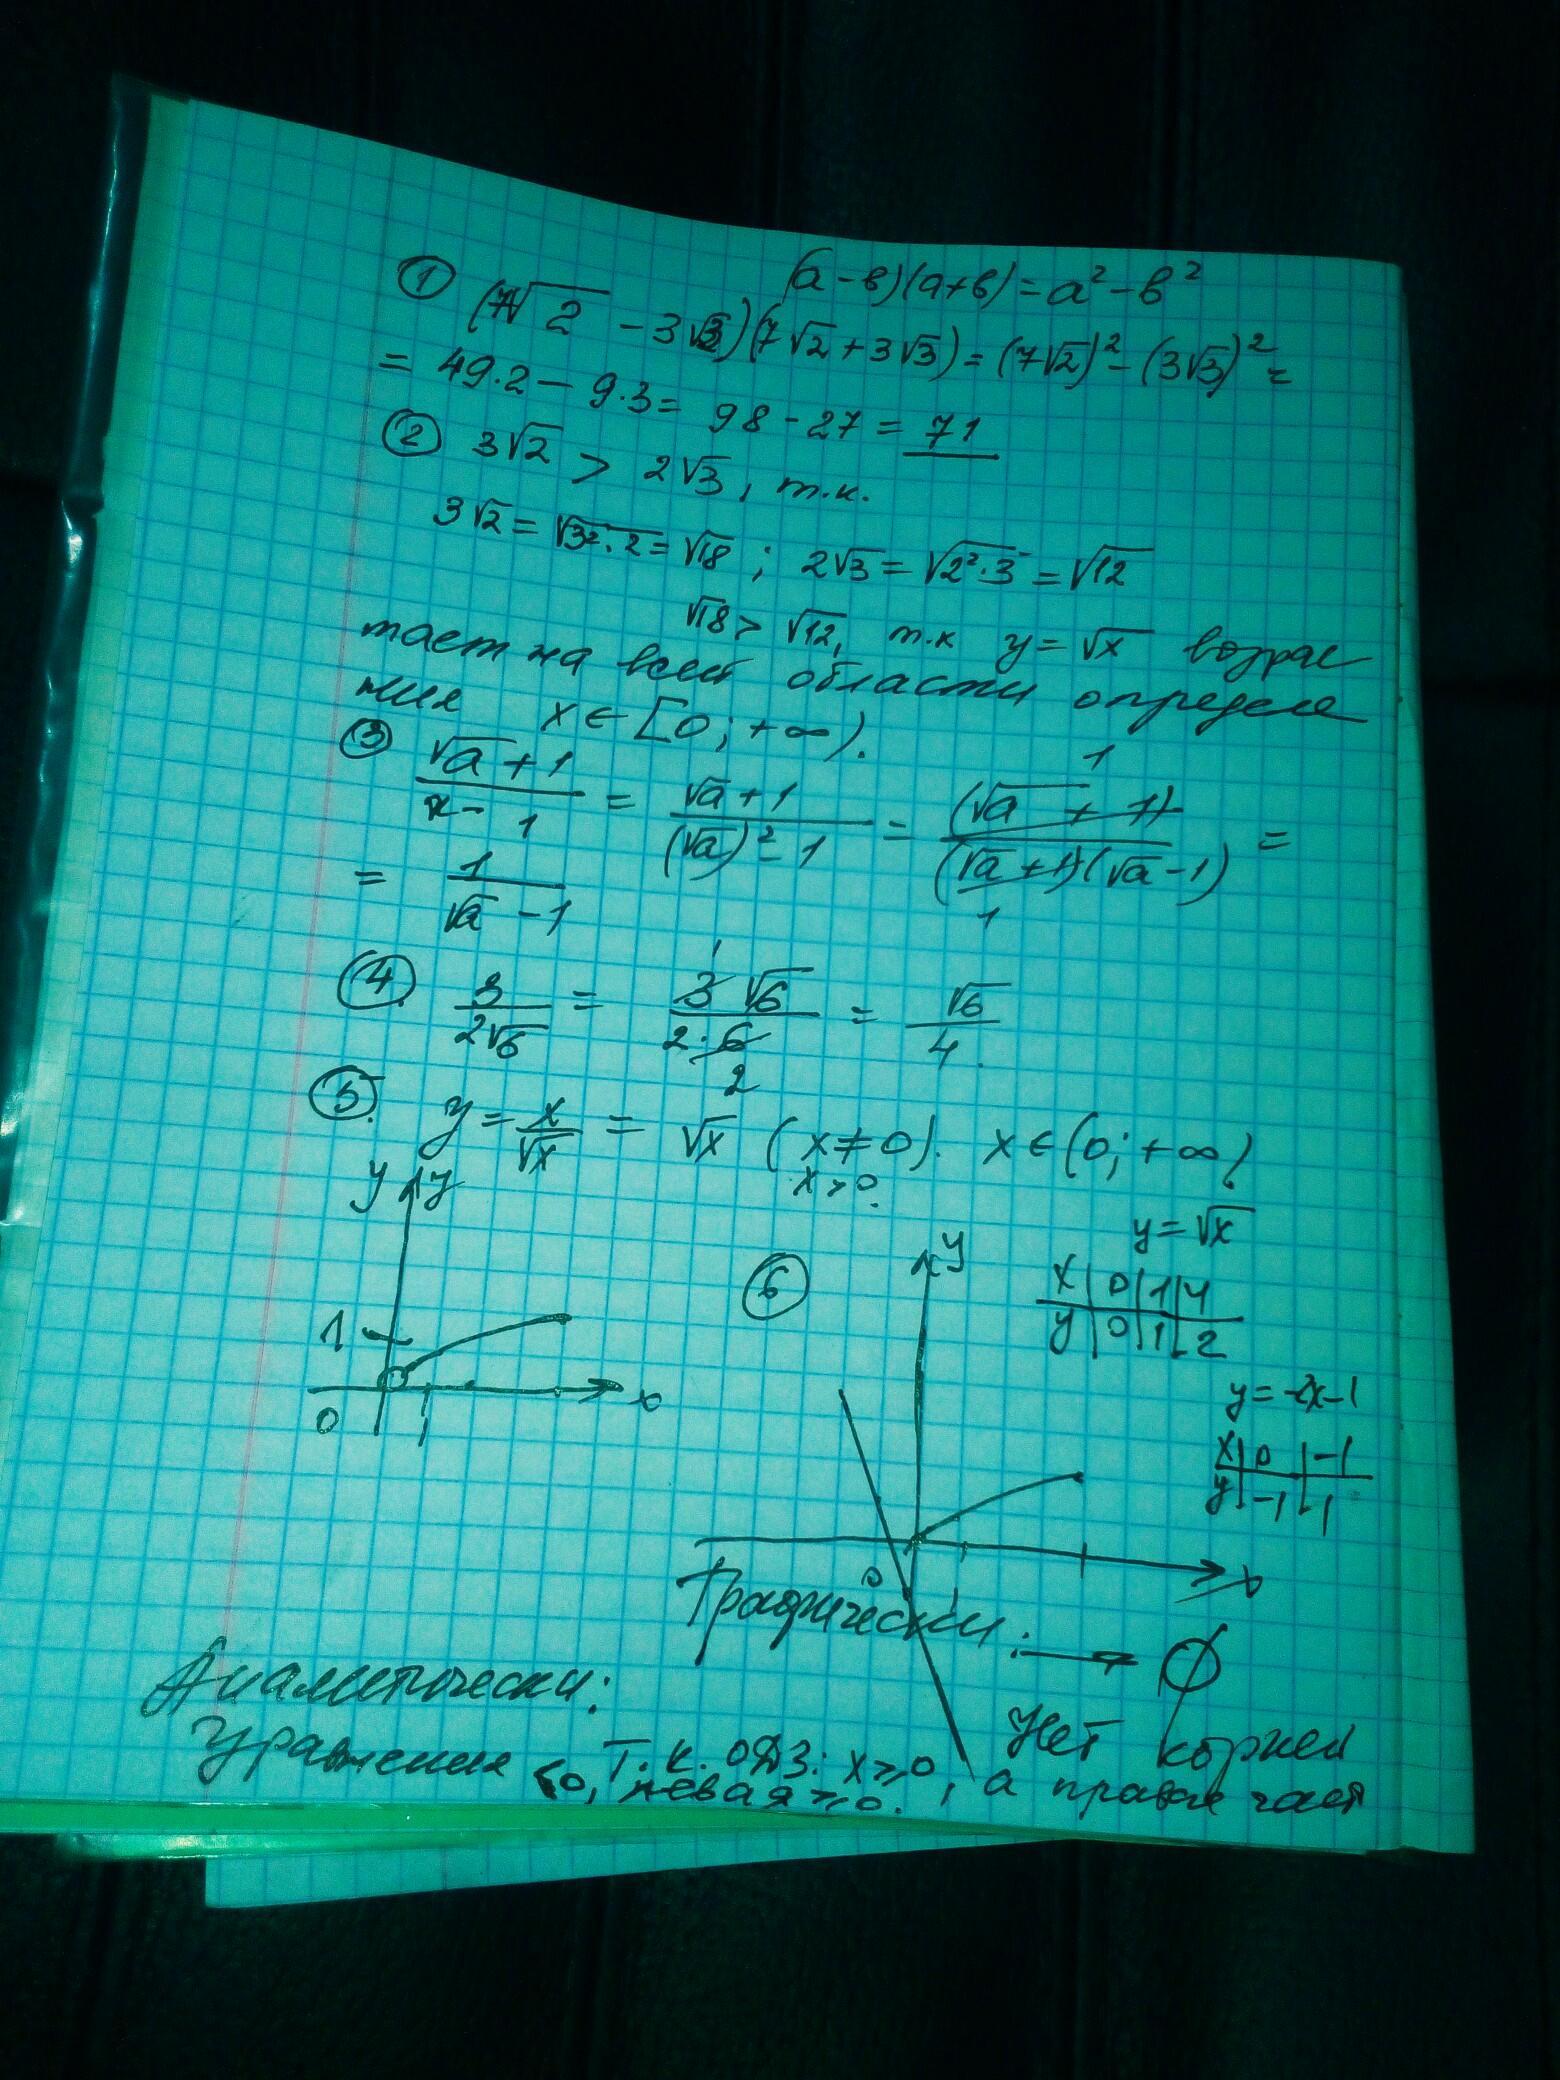 (a-в)(a+в) = a² - в²
① (7√2 - 3√3)(7√2 + 3√3) = (7√2)² - (3√3)² =
= 49·2 - 9·3 = 98 - 27 = 71
② 3√2 > 2√3, т.к.
3√2 = √3²·2 = √18 ; 2√3 = √2²·3 = √12
√18 > √12, т.к y = √x возрас
тает на всей области определе
ния x ∈ [0; +∞).
③ (√a + 1)/(x - 1) = (√a + 1)/((√a)² - 1) = (√a + 1)/((√a + 1)(√a - 1)) =
= 1/(√a - 1)
④ 3/(2√6) = 3√6/(2·6) = √6/4.
⑤ y = x/√x = √x (x ≠ 0). x ∈ (0; +∞)
x > 0.
y y
1
0 1 x
⑥
y
y = √x
x | 0 | 1 | 4
y | 0 | 1 | 2
y = -2x-1
x | 0 | -1
y | -1 | 1
0 1 x
Графически: → ∅
Нет корней
Аналитически:
Уравнения т.к. ОДЗ: x ≥ 0, а правая част
< 0, левая ≥ 0.